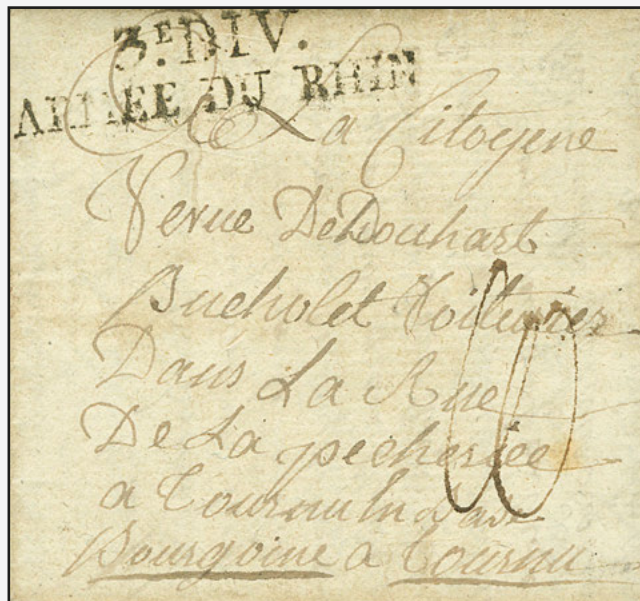 3E. DIV.
ARMÉE DU RHIN
A La Citoyene
Vevue DeDouhart
Bucholet Voiturier
Dans La Rue
De La pecheriee
a Tournu
Bourgoine a Tournu